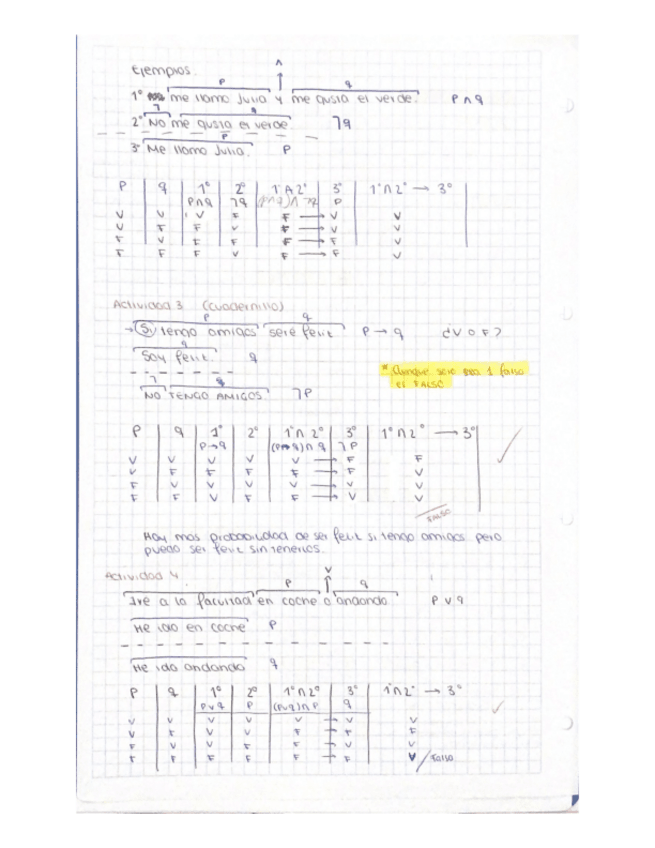 Ejemplos.
p ∧ q
1º me llamo Julia y me gusta el verde. p ∧ q
7 q
2º No me gusta el verde 7q
3º Me llamo Julia. p
p q 1º 2º 1º ∧ 2º 3º 1º ∩ 2º → 3º
p∩q 7q (p∩q)∩ 7q p
V V V F F → V V
V F F V F → V V
F V F F F → F V
F F F V F → F V
Actividad 3 (cuadernillo)
p q
→ Si tengo amigos seré feliz p → q ¿V o F?
q
Soy feliz. q
7 q
NO TENGO AMIGOS 7p
* Aunque solo 1 falso
el FALSO
p q 1º 2º 1º ∩ 2º 3º 1º ∩ 2º → 3º
p→q (p→q)∩ q 7p
V V V V V → F F
V F F F F → F V
F V V V V → V V
F F V F F → V V
FALSO
Hay mas probabilidad de ser feliz si tengo amigos pero
puedo ser feliz sin tenerlos.
Actividad 4.
p v q
Ire a la facultad en coche o andando p v q
He ido en coche p
He ido andando q
p q 1º 2º 1º ∩ 2º 3º 1º ∩ 2º → 3º
p v q p (pvq)∩ p q
V V V V V → V V
V F V V F → F F
F V V F F → V V
F F F F F → F V / Falso